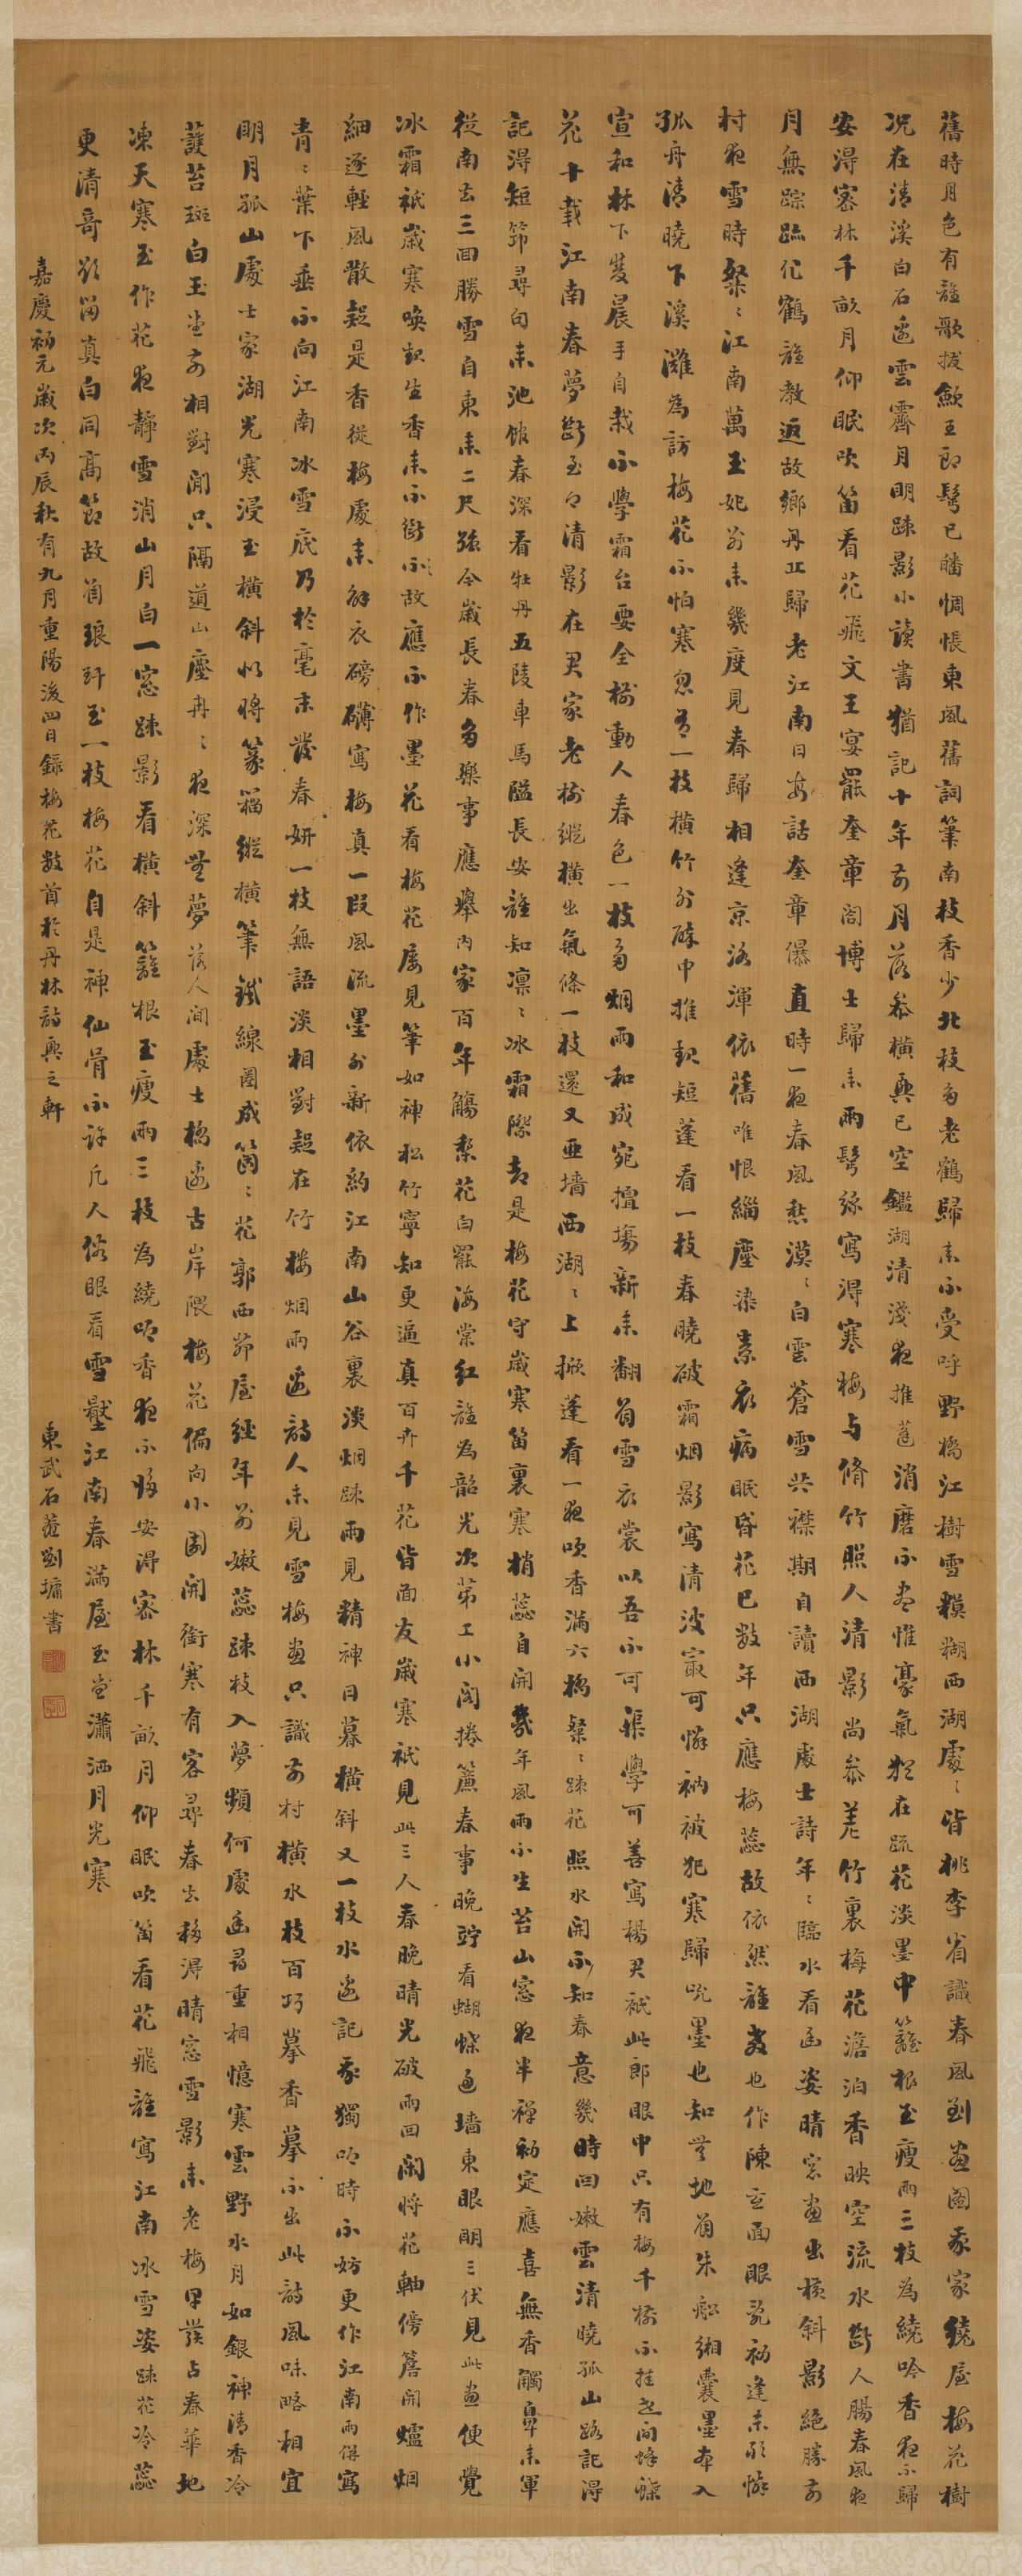 舊時月色有誰歌拔歘王郎鬢已皤惆悵東風舊詞筆南枝香少北枝多老鶴歸來不受呼野橋江樹雪糢糊西湖處〻皆桃李省識春風到畫圖我家繞屋梅花樹
况在清溪白石邊雲霽月明疎影小讀書猶記十年前月落參橫興已空鑑湖清淺夜推篷消磨不盡惟豪氣猶在疏花淡墨中籬根玉瘦兩三枝為繞吟香夜不歸
安得密林千畝月仰眠吹笛看花飛文王宴罷奎章閣博士歸來兩鬢絲寫得寒梅与脩竹照人清影尚參差竹裏梅花澹泊香映空流水斷人腸春風夜
月無蹤跡化鶴誰教返故鄉丹丘歸老江南日每話奎章儤直時一夜春風愁漠〻白雲蒼雪共襟期自讀西湖處士詩年〻臨水看幽姿晴窓畫出橫斜影絕勝前
村夜雪時粲〻江南萬玉妃前來幾度見春歸相逢京洛渾依舊唯恨緇塵染素衣病眠昏花已數年只應梅蕊故依然誰教也作陳玄面眼亂初逢未敢憐
孤舟清曉下溪灘為訪梅花不怕寒忽見一枝橫竹外醉中推起短蓬看一枝春曉破霜烟影寫清波最可憐衲被犯寒歸吮墨也知無地着朱船緗囊墨本入
宣和林下雙晨手自栽不學霜台要全樹動人春色一枝多烟雨和成宛擅場新來翻着雪衣裳以吾不可㮚學可善寫楊君衹此郎眼中只有梅千樹不挂世間蜂蝶
花十載江南春夢斷至今清影在君家老樹縱橫出氣條一枝還又亞墻西湖〻上撅蓬看一夜吹香滿六橋粲〻疎花照水開不知春意幾時回嫩雲清曉孤山路記得
記得短笻尋句來池館春深看牡丹五陵車馬隘長安誰知凜〻冰霜際却是梅花守歲寒笛裏寒梢蕊自開幾年風雨不生苔山窓夜半禪初定應喜無香觸鼻來軍
從南去三回勝雪自東來二尺強今歲長春多樂事應舉內家百年觴梨花白罷海棠紅誰為韶光次第工小閣捲簾春事晚貯看蝴蝶過墻東眼明三伏見此畫便覺
冰霜衹歲寒喚起生香來不衘不故應不作墨花看梅花屢見筆如神松竹寧知更逼真百卉千花皆面友歲寒衹見此三人春晚晴光破雨回閑將花軸傍簷開爐烟
細逐輕風散疑是香從梅處來解衣磅礴寫梅真一段風流墨外新依約江南山谷裏淡烟疎雨見精神日暮橫斜又一枝水邊記我獨吟時不妨更作江南雨併寫
青〻葉下垂不向江南冰雪底乃於毫末發春妍一枝無語淡相對疑在竹樓烟雨邊詩人未見雪梅畫只識前村橫水枝百巧摹香摹不出此詩風味略相宜
明月孤山處士家湖光寒浸玉橫斜似將篆籀縱橫筆鐵線圈成箇〻花郭西茆屋經年別嫩蕊疎枝入夢頻何處幽尋重相憶寒雲野水月如銀神清香冷
護苔斑白玉堂前相對閒只隔道山塵冉〻夜深無夢落人間處士橋邊古岸隈梅花偏向小園開銜寒有客尋春去移得晴窓雪影來老梅早發占春華地
凍天寒玉作花夜靜雪消山月白一窓疎影看橫斜籬根玉瘦兩三枝為繞吟香夜不歸安得密林千畝月仰眠吹笛看花飛誰寫江南冰雪姿疎花冷蕊
更清奇欲留真白同高節故着琅玕玉一枝梅花自是神仙骨不許凡人俗眼看雪壓江南春滿屋玉堂瀟洒月光寒
嘉慶初元歲次丙辰秋有九月重陽後四日錄梅花數首於丹林詩興之軒
東武石菴劉墉書